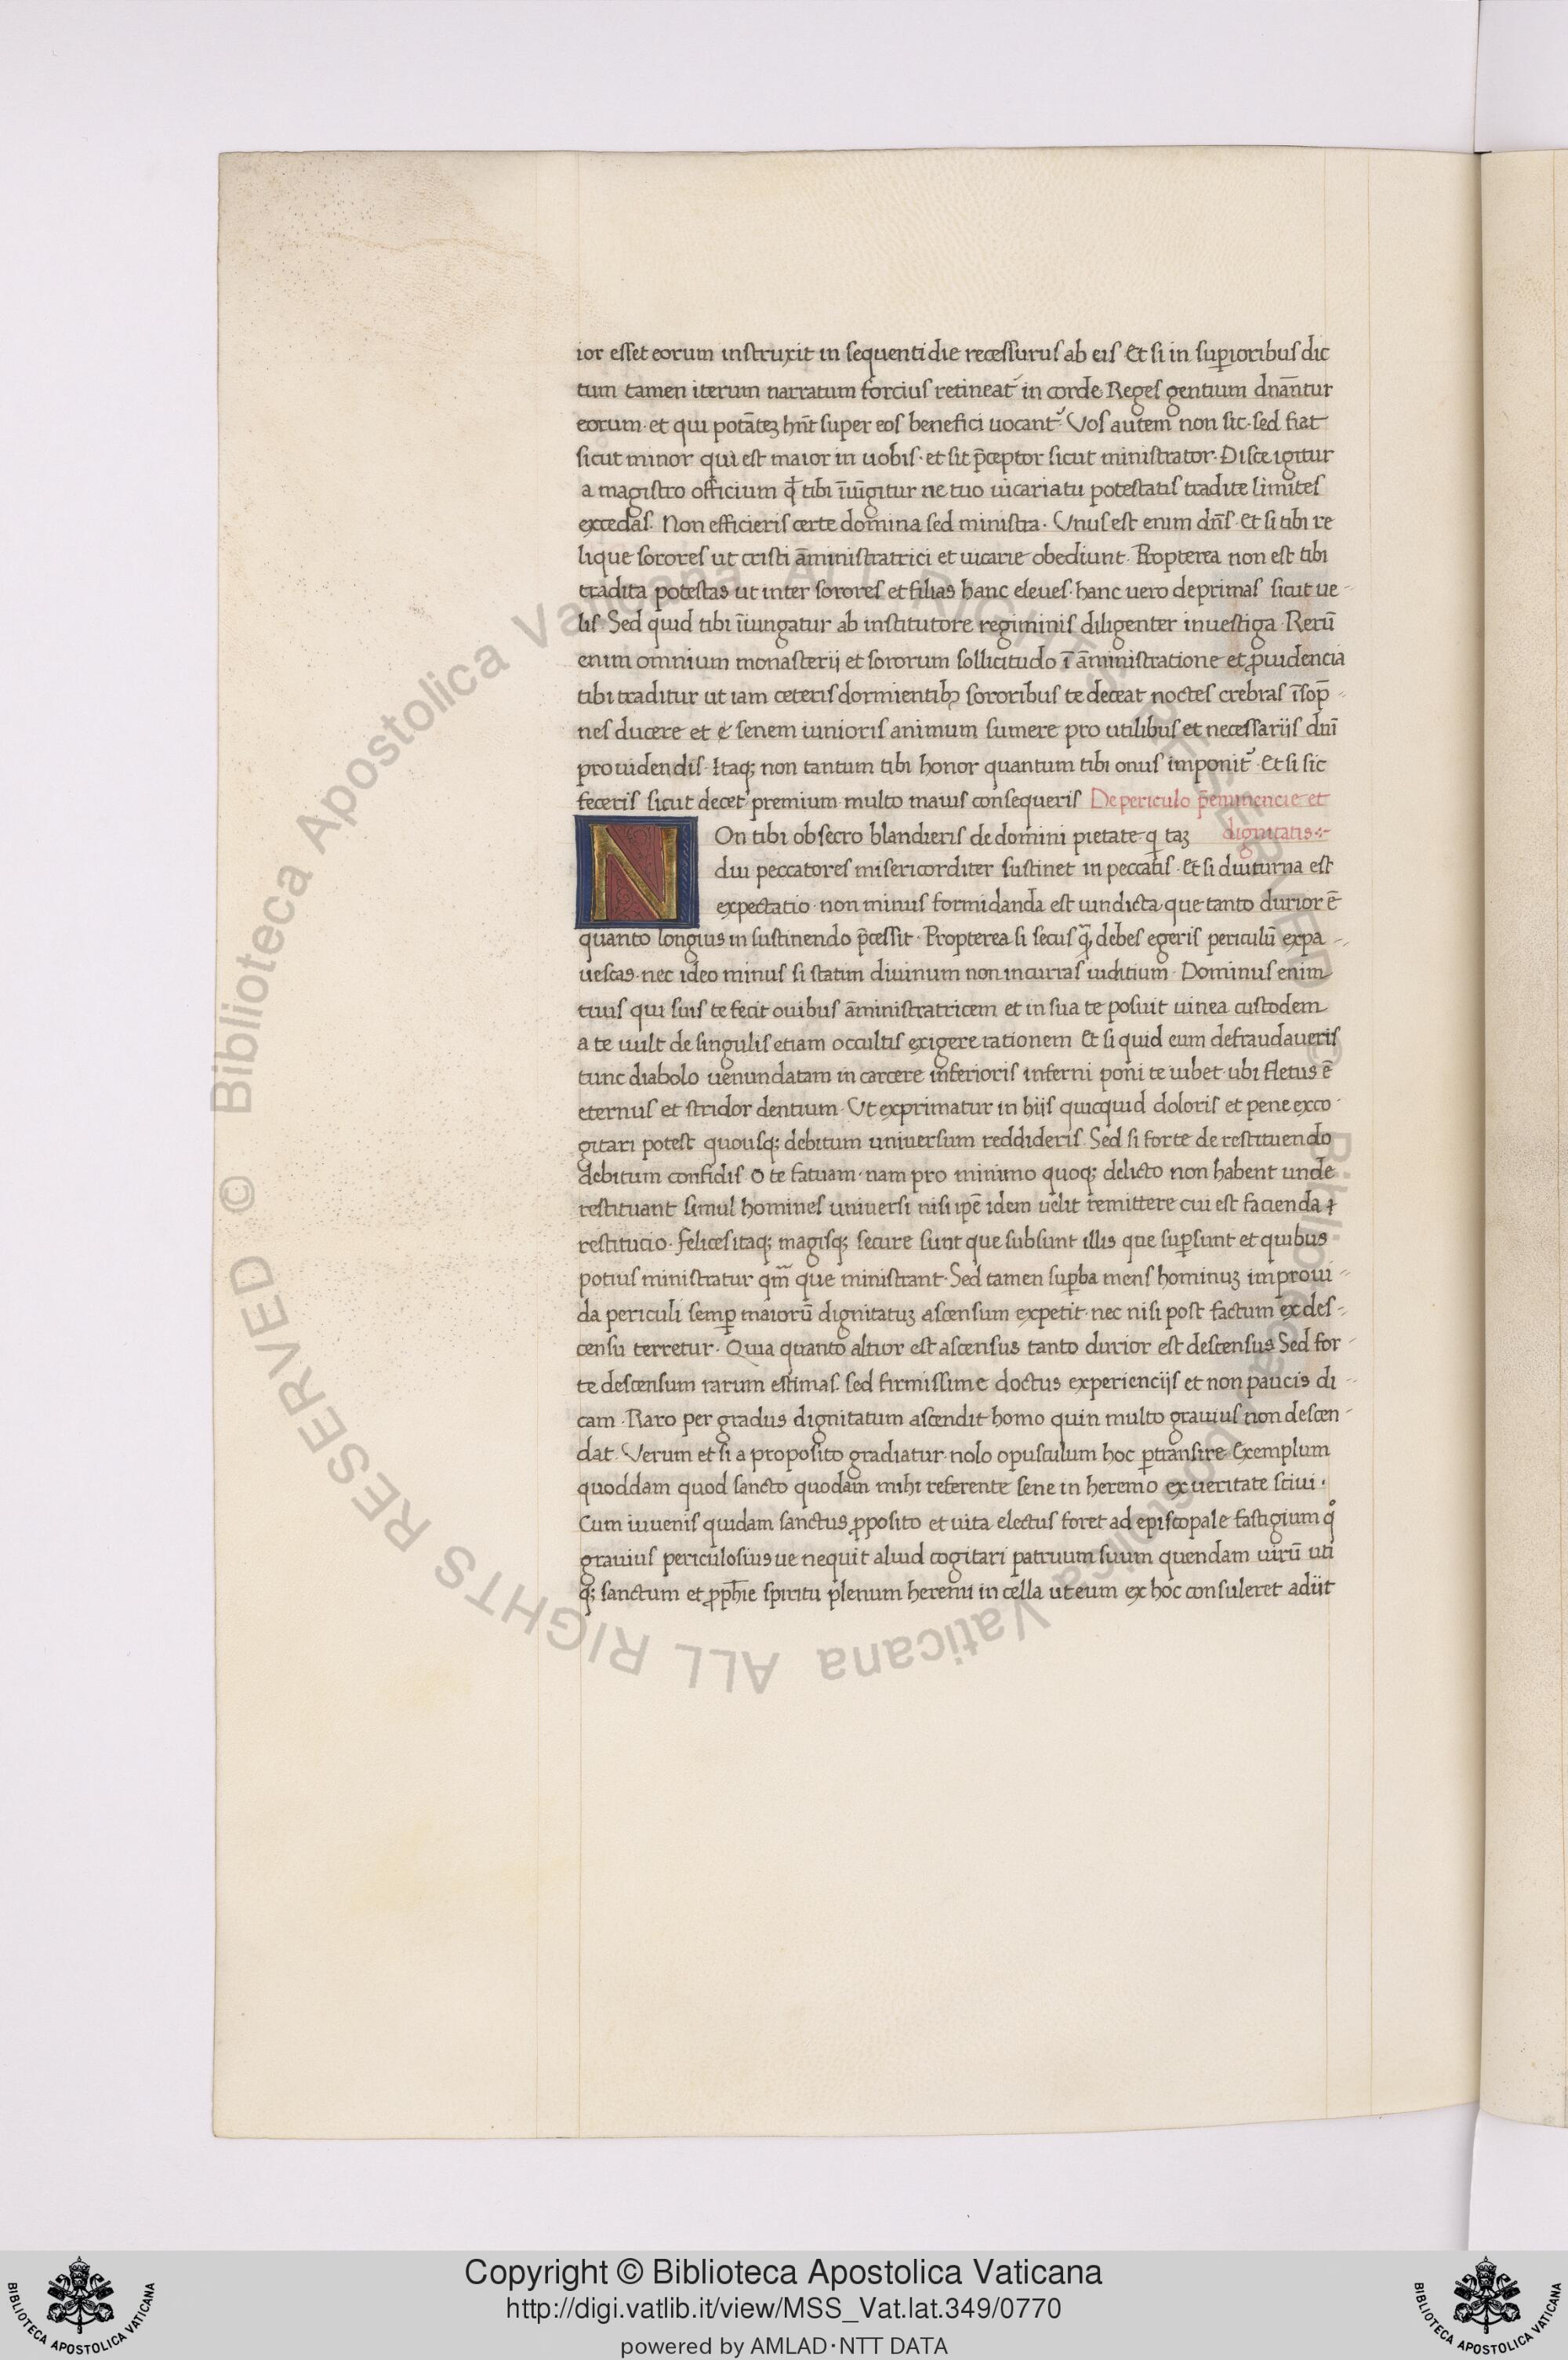 ior esset eorum instruxit in sequenti die recessurus ab eis Et si in sup̲ioribus dic
tum tamen iterum narratum forcius retineat᷑ in corde Reges gentium dn̄antur
eorum · et qui potātez hn̄t super eos benefici uocant᷑ · Vos autem non sic · sed fiat
sicut minor qui est maior in uobis · et sit p̄ceptor sicut ministrator · Disce igitur
a magistro officium qđ tibi īiūgitur ne tuo uicariatu potestatis tradite limites
excedas · Non efficieris certe domina sed ministra · Vnus est enim dn̄s · Et si tibi re
lique sorores ut cristi āministratrici et uicarie obediunt · Propterea non est tibi
tradita potestas ut inter sorores et filias hanc eleues · hanc uero deprimas sicut ue-
lis · Sed quid tibi īiungatur ab institutore regiminis diligenter inuestiga · Rerū
enim omnium monasterij et sororum sollicitudo ī āministratione et ꝓuidencia
tibi traditur ut iam ceteris dormientibꝫ sororibus te deceat noctes crebras īsop̄-
nes ducere et ē senem iunioris animum sumere pro utilibus et necessarijs dn̄i
prouidendis · Itaqꝫ non tantum tibi honor quantum tibi onus imponit᷑ · Et si sic
feceris sicut decet premium multo maius consequeris De periculo p̄eminencie et
NOn tibi obsecro blandieris de domini pietate q̲ taz dignitatis :~
diu peccatores misericorditer sustinet in peccatis · Et si diuturna est
expectatio · non minus formidanda est uindicta que tanto durior ē
quanto longius in sustinendo p̄cessit · Propterea si secus q̄ꝫ debes egeris periculū expa-
uescas · nec ideo minus si statim diuinum non incurras iuditium · Dominus enim
tuus qui suis te fecit ouibus āministratricem et in sua te posuit uinea custodem
a te uult de singulis etiam occultis exigere rationem Et si quid eum defraudaueris
tunc diabolo uenundatam in carcere inferioris inferni poni te iubet ubi fletus ē
eternus et stridor dentium · Vt exprimatur in hijs quicquid doloris et pene exco-
gitari potest quousqꝫ debitum uniuersum reddideris · Sed si forte de restituendo
debitum confidis · O te fatuam · nam pro minimo quoqꝫ delicto non habent unde
restituant simul homines uniuersi nisi ip̄e idem uelit remittere cui est facienda
restitucio · Felices itaqꝫ magisqꝫ secure sunt que subsunt illis que sup̲sunt et quibus
potius ministratur qm̄ que ministrant · Sed tamen sup̲ba mens hominuz improui-
da periculi semp̲ maiorū dignitatuz ascensum expetit · nec nisi post factum ex des-
censu terretur · Quia quanto altior est ascensus tanto durior est descensus Sed for-
te descensum rarum estimas · sed firmissime doctus experiencijs et non paucis di-
cam · Raro per gradus dignitatum ascendit homo quin multo grauius non descen-
dat · Verum et si a proposito gradiatur · nolo opusculum hoc p̲transire Exemplum
quoddam quod sancto quodam mihi referente sene in heremo ex ueritate sciui ·
Cum iuuenis quidam sanctus ꝓposito et uita electus foret ad episcopale fastigium q°
grauius periculosius ue nequit aliud cogitari patruum suum quendam uirū uti
qꝫ sanctum et ꝓph̄ie spiritu plenum heremi in cella ut eum ex hoc consuleret adiit
© Biblioteca Apostolica Vaticana ALL RIGHTS RESERVED © Biblioteca Apostolica Vaticana ALL RIGHTS RESERVED
Copyright © Biblioteca Apostolica Vaticana
http://digi.vatlib.it/view/MSS_Vat.lat.349/0770
powered by AMLAD·NTT DATA
BIBLIOTECA APOSTOLICA VATICANA
BIBLIOTECA APOSTOLICA VATICANA